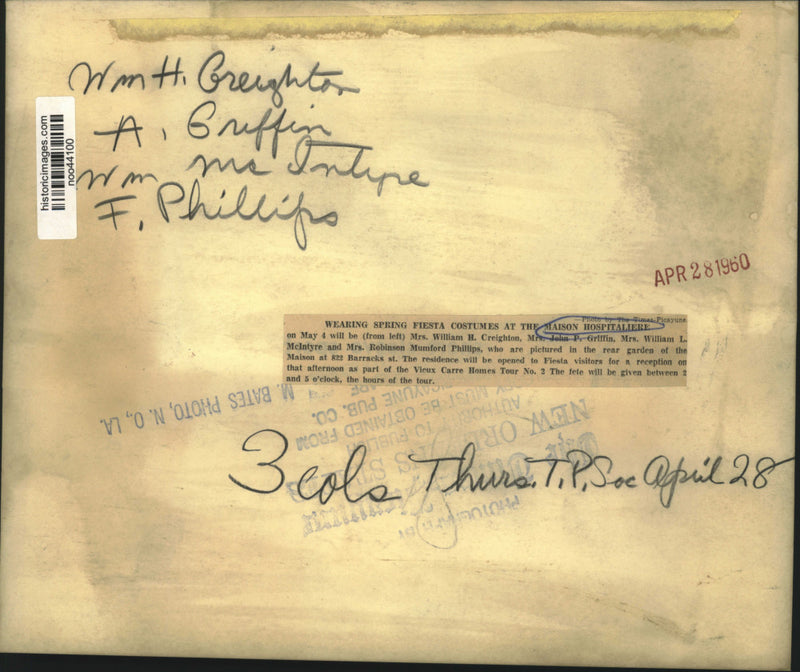 Wm H. Creighton
A. Griffin
Wm Mc Intyre
F. Phillips
historicimages.com
noo44100
APR 28 1960
—Photo by The Times-Picayune
WEARING SPRING FIESTA COSTUMES AT THE MAISON HOSPITALIERE
on May 4 will be (from left) Mrs. William H. Creighton, Mrs. John P. Griffin, Mrs. William L.
McIntyre and Mrs. Robinson Mumford Phillips, who are pictured in the rear garden of the
Maison at 822 Barracks st. The residence will be opened to Fiesta visitors for a reception on
that afternoon as part of the Vieux Carre Homes Tour No. 2 The fete will be given between 2
and 5 o'clock, the hours of the tour.
M. BATES PHOTO, N. O., LA.
3 cols Thurs. T.P. Soc April 28
PHOTOGRAPH BY
NEW ORLEANS STATES
AUTHOR. TO PUBLISH
MUST BE OBTAINED FROM
PICAYUNE PUB. CO.